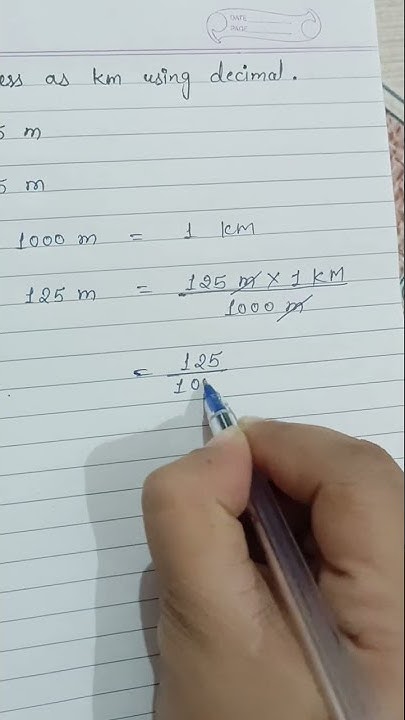 DATE
PAGE
ess as km using decimal.
5 m
5 m
1000 m = 1 KM
125 m = 125 m × 1 KM
1000 m
= 125
100